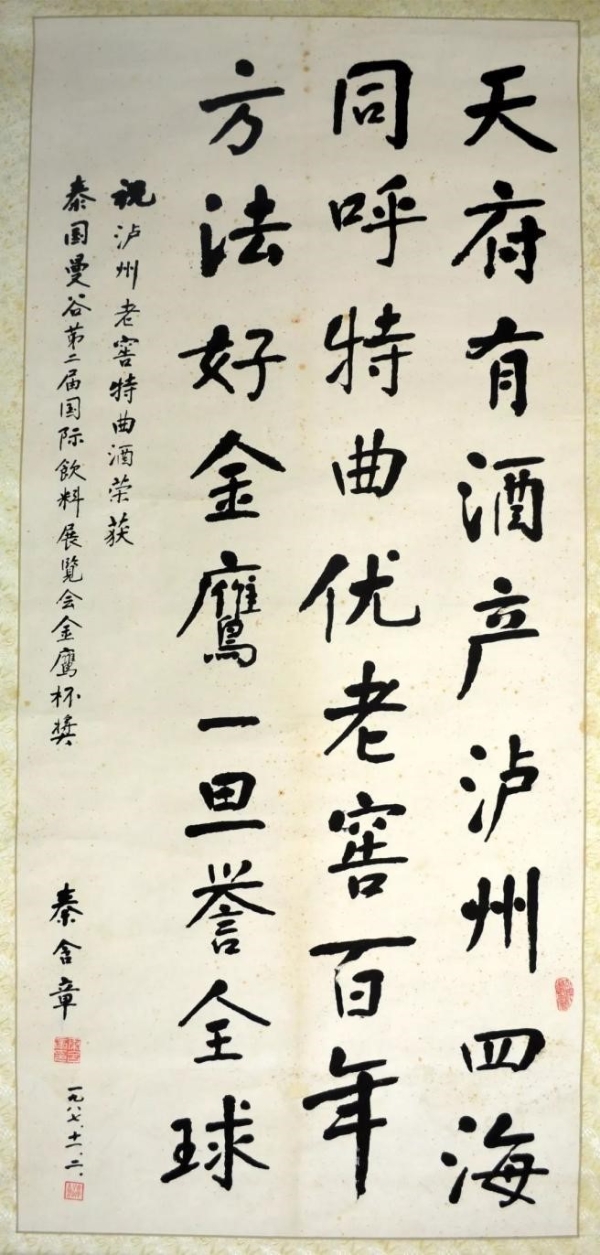 天府有酒产泸州四海
同呼特曲优老窖百年
方法好金鹰一旦誉全球
祝泸州老窖特曲酒荣获
泰国曼谷第二届国际飲料展覽会金鹰杯奬
秦含章
一九八七.十一.二.